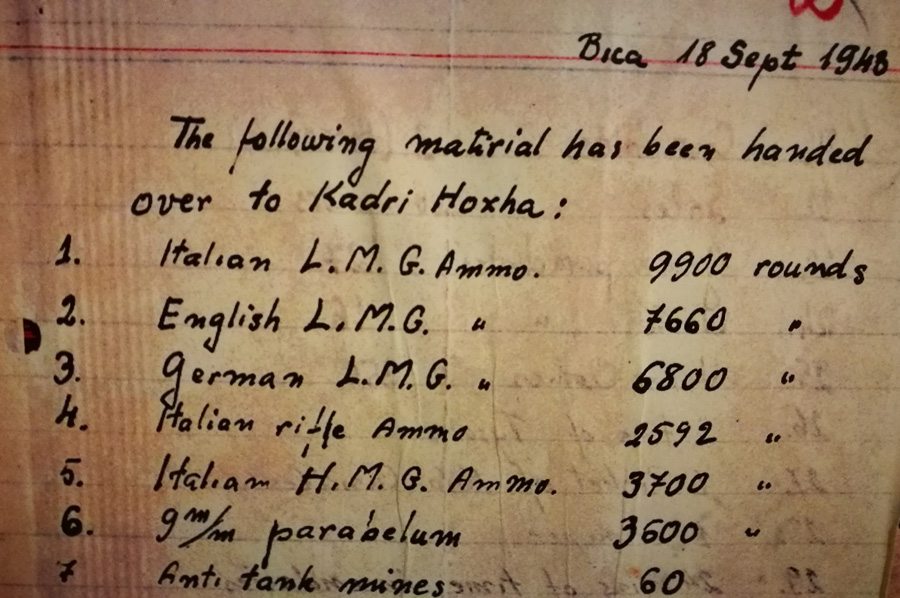 Bica 18 Sept 1943
The following matirial has been handed
over to Kadri Hoxha:
1. Italian L.M.G. Ammo. 9900 rounds
2. English L.M.G. " 7660 "
3. German L.M.G. " 6800 "
4. Italian rifle Ammo 2592 "
5. Italian H.M.G. Ammo. 3700 "
6. 9 m/m parabelum 3600 "
7 Anti tank mines 60